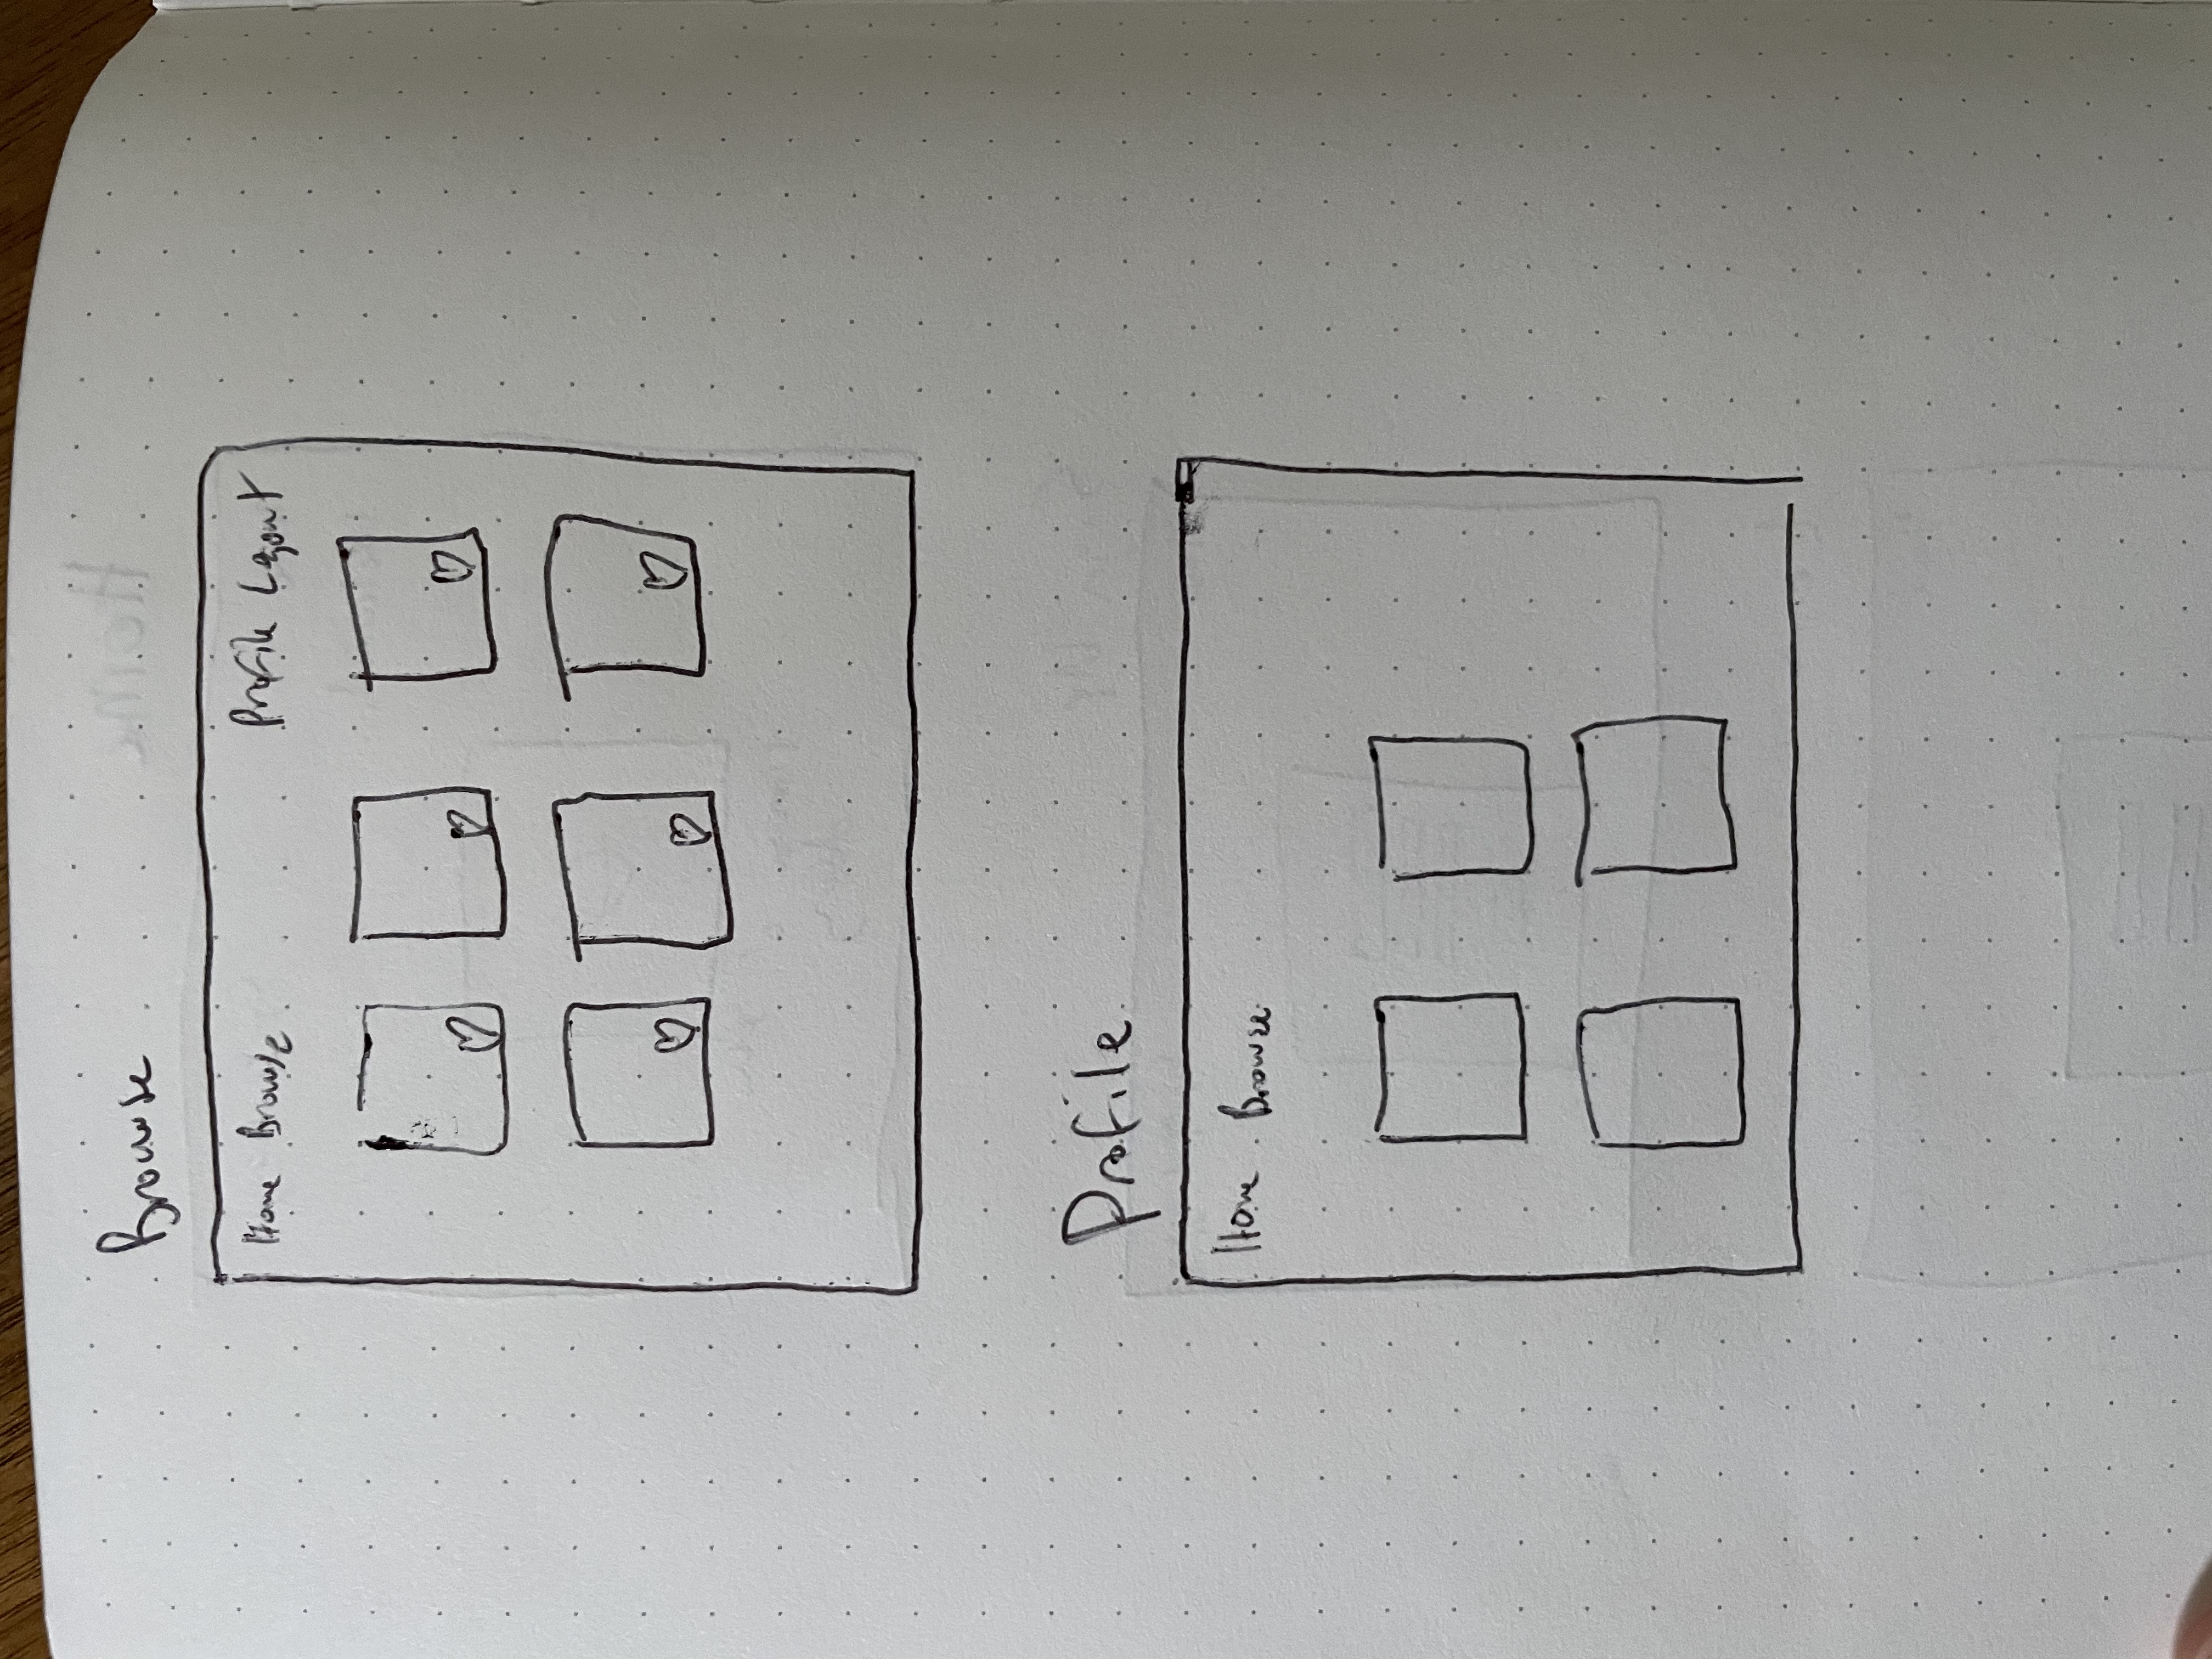 Browse
Home Browse Profile Logout
Profile
Home Browse